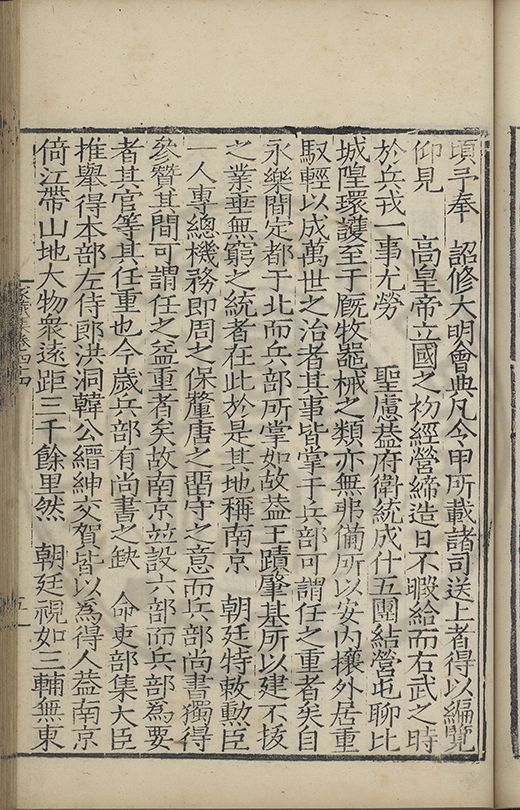 頃予奉　詔修大明會典凡令甲所載諸司送上者得以編覽
仰見　高皇帝立國之初經營締造日不暇給而右武之時
於兵戎一事尤勞　聖慮葢府衛統成什五團結營屯聊比
城隍環護至于廐牧噐械之類亦無弗備所以安内攘外居重
馭輕以成萬世之治者其事皆掌于兵部可謂任之重者矣自
永樂間定都于北而兵部所掌如故葢王蹟肇基所以建不拔
之業垂無窮之統者在此於是其地稱南京　朝廷特敕勲臣
一人專總機務即周之保釐唐之畱守之意而兵部尚書獨得
參贊其間可謂任之益重者矣故南京並設六部而兵部為要
者其官等其任重也今歲兵部有尚書之缺　命吏部集大臣
推舉得本部左侍郎洪洞韓公縉紳交賀皆以為得人葢南京
倚江帶山地大物衆遠距三千餘里然　朝廷視如三輔無東
家藏集卷四十四
五